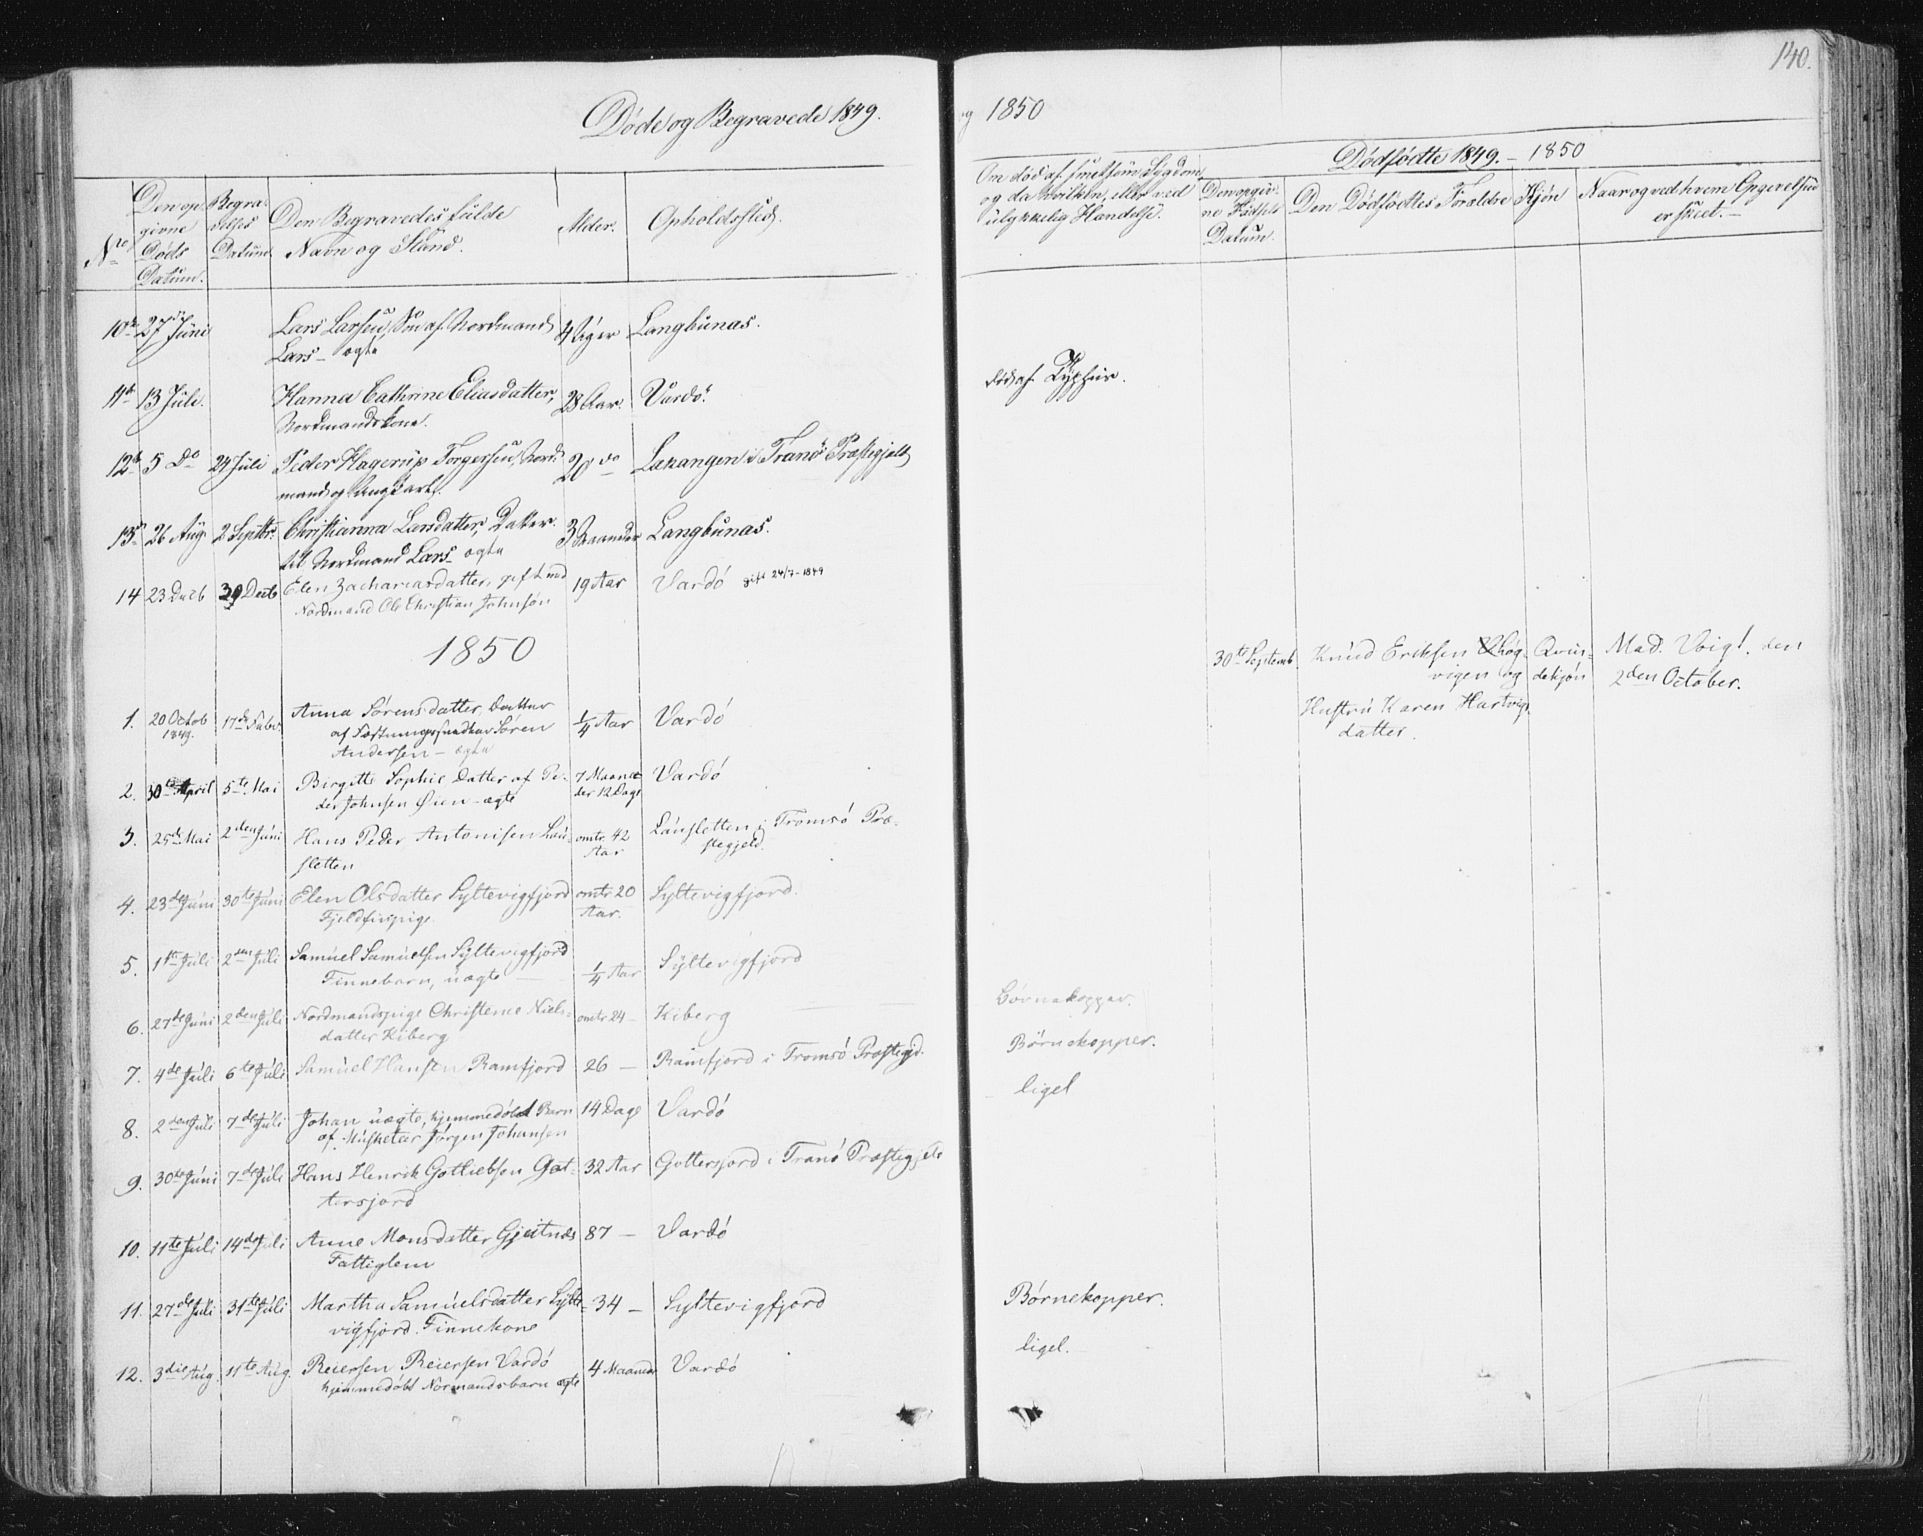 140.
Døde og Begravede 1849.
og 1850
Dødfødte 1849. - 1850
No
Den op
givne
Døds
Datum.
Begra-
velses
Datum
Den Begravedes fulde
Navn og Stand.
Alder.
Opholdssted.
Om død af smitsom Sygdom
og da hvilken, eller ved
ulykkelig Hændelse.
Den opgiv-
ne Fødsels
Datum.
Den Dødfødtes Forældre
Kjøn
Naar og ved hvem Opgivelsen
er skeet. -
10de 27de Juni Lars Larsen, Søn af Nordmand 4 Uger Langbunæs.
Lars - ægte
11te 13 Juli. Hanna Cathrine Eliasdatter, 28 Aar. Vardö. død af Typhus.
Nordmandskone.
12te 5 Do 24 Juli Peder Hagerup Torgersen, Nord- 20 do Laxangen i Tranö Præstegjeld
mand og Ungkarl.
13de 26 Aug 2 Septbr. Christianna Larsdatter, Datter 3 Maaneder Langbunæs.
til Nordmand Lars - ægte
14 23 Decb 30 Decb Elen Zachariasdatter, gift med 19 Aar Vardö gift 24/7-1849
Nordmand Ole Christian Johnsen
1850
30te Septemb. Knud Eriksen Rhøg- Qvin- Mad. Voigt. den
vigen og dekjøn 2den October.
Hustru Karen Hartvigs
datter.
1. 20 Octob 17de Febr. Anna Sørensdatter, Datter 1/4 Aar Vardö
1849. af Søren
Andersen - ægte
2. 30te April 5te Mai Birgitte Sophie Datter af Pe- 7 Maane- Vardö
der Johnsen Øien - ægte der 12 Dage
3. 25de Mai 2den Juni Hans Peder Antonisen Lan- omtr. 42 Lansletten i Tromsö Præ-
sletten Aar stegjeld.
4. 23de Juni 30te Juni Elen Olsdatter Syltevigfjord omtr 20 Syltevigfjord.
Fjeldfinpige Aar.
5. 1ste Juli 2den Juli Samuel Samuelsen Syltevigfjord 1/4 Aar Syltevigfjord
Finnebarn, uægte - Börnekopper.
6. 27de Juni 2den Juli Nordmandspige Christine Niels- omtr 24 - Kiberg
datter Kiberg Börnekopper.
7. 4de Juli 6te Juli Samuel Hansen Ramfjord 26 - Ramfjord i Tromsö Præstegjd.
ligel
8. 2den Juli 7de Juli Johan uægte, hjemmedöbt Barn 14 Dage Vardö
af Musketeer Jörgen Johansen
9. 30te Juni 7de Juli Hans Henrik Gotliebsen Gat- 32 Aar Gottersjord i Tranö Præstegjeld
tersjord
10. 11te Juli 14de Juli Anne Monsdatter Gjeitnes 87 - Vardö
Fattiglem
11. 27de Juli 31te Juli Martha Samuelsdatter Sylte- 34 - Syltevigfjord Börnekopper.
vigfjord. Finnekone ligel.
12. 3die Aug. 11te Aug. Reiersen Reiersen Vardö 4 Maaneder Vardö
hjemmedöbt Normandsbarn ægte